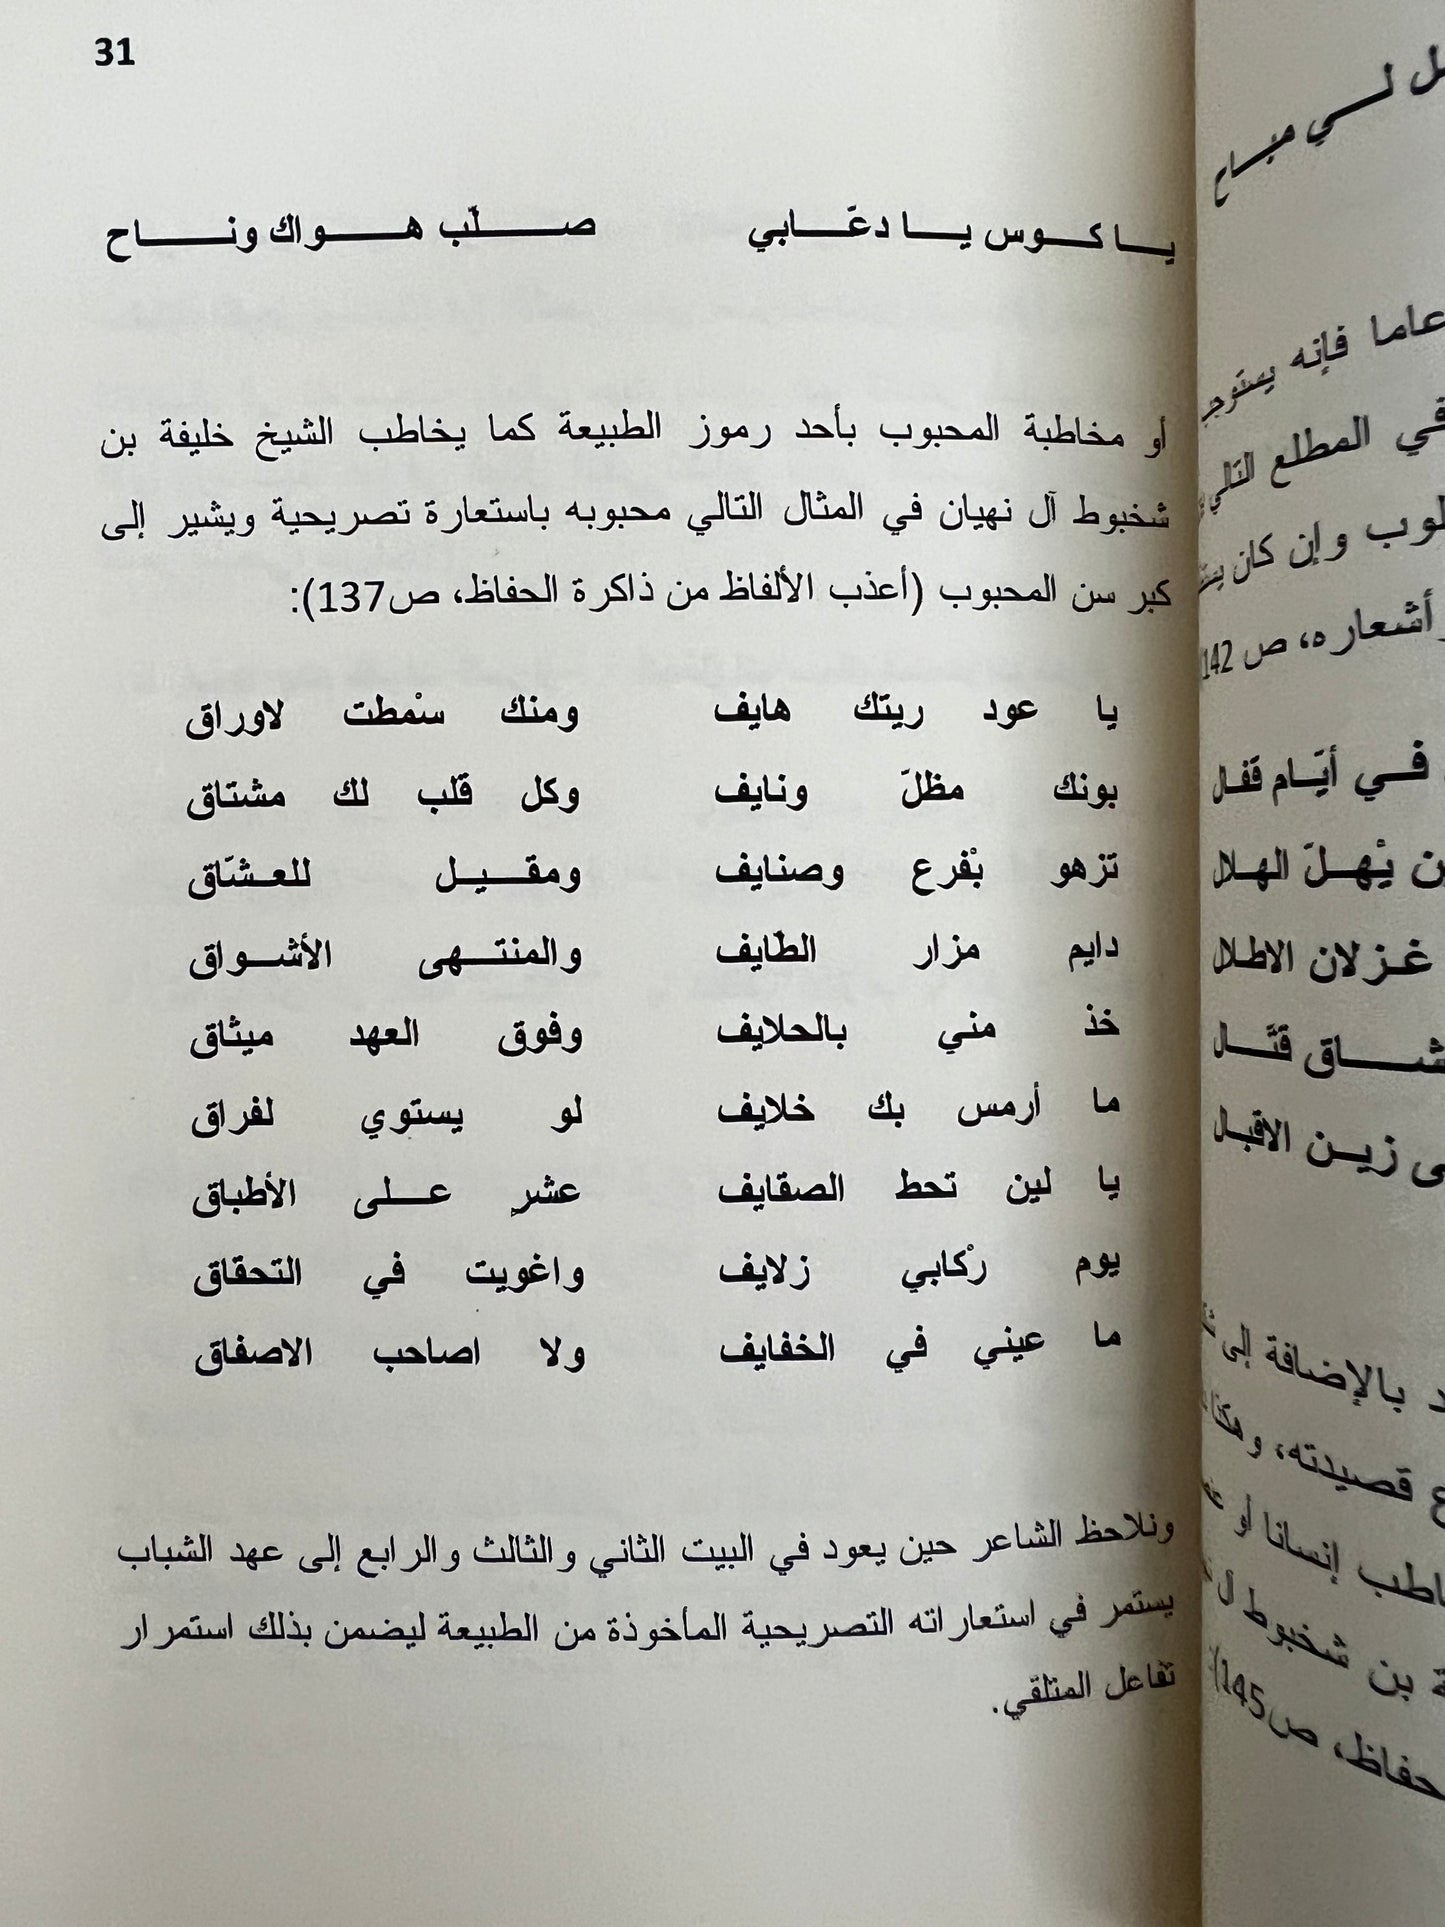 31
يـــا كـــوس يـــا دعّـــابي صـــلّب هـــواك ونـــاح
أو مخاطبة المحبوب بأحد رموز الطبيعة كما يخاطب الشيخ خليفة بن
شخبوط آل نهيان في المثال التالي محبوبه باستعارة تصريحية ويشير إلى
كبر سن المحبوب (أعذب الألفاظ من ذاكرة الحفاظ، ص137):
يا عود ريتك هايف ومنك سمْطت لاوراق
بونك مظلّ ونايف وكل قلب لك مشتاق
تزهو بْفرع وصنايف ومقـــيـــل للعـشّاق
دايم مزار الطّايف والمنتـــهى الأشـــواق
خذ مني بالحلايف وفوق العهد ميثاق
ما أرمس بك خلايف لو يستوي لفراق
يا لين تحط الصقايف عشرِ عـــلـى الأطباق
يوم رْكابي زلايف واغويت في التحقاق
ما عيني في الخفايف ولا اصاحب الاصفاق
ونلاحظ الشاعر حين يعود في البيت الثاني والثالث والرابع إلى عهد الشباب
يستمر في استعاراته التصريحية المأخوذة من الطبيعة ليضمن بذلك استمرار
تفاعل المتلقي.
عاما فإنه
في المطلع التالي
وإن كان
أشعاره، ص 142
في أيّـام قفـال
يْهـلّ الهـلال
غـزلان الاطـلال
قتّـــال
زيـن الاقبـال
بالإضافة إلى
قصيدته، وهكذا
إنسانا أو
بن شخبوط آل
ص145)